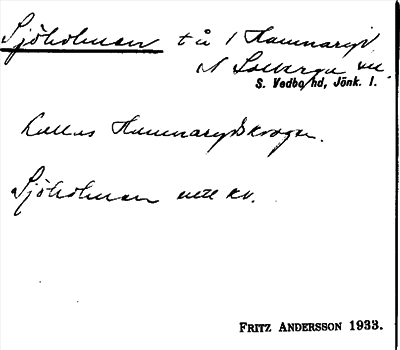 Sjöholmen tå 1 Hamnaryd
N Solberga sn
S. Vedbo hd, Jönk. l.
Kallas Hamnarydskogen.
Sjöholmen kv.
FRITZ ANDERSSON 1933.